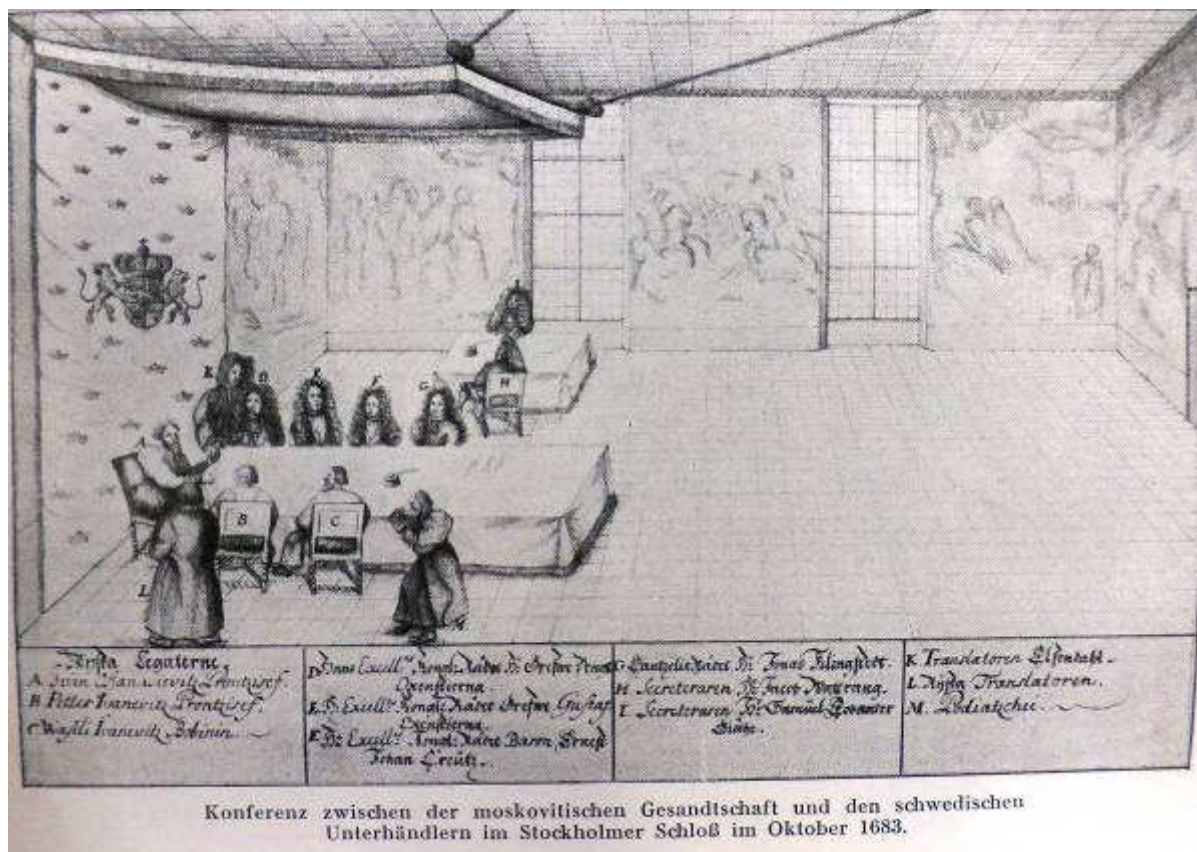 A
B
C
D
E
F
G
H
K
L
M
Ryssa Legaterne,
A Ivan
B Petter Ivanevitz Prontzisef.
C Wasili Ivanevitz Bobinin.
D Hans Excell. Kongl. Rådet Hr Grefwe
Oxenstierna.
E Hr Excell. Kongl. Rådet Grefwe Gustaf
Oxenstierna.
F Hr Excell. Kongl. Rådet Baron, Ernest
Johan Creütz.
G Cantzelie Rådet Hr Jonas Klingstedt.
H Secreteraren Hr Jacob
I Secreteraren Hr Samuel
K Translatoren
L Ryssa Translatoren.
M.
Konferenz zwischen der moskovitischen Gesandtschaft und den schwedischen
Unterhändlern im Stockholmer Schloß im Oktober 1683.